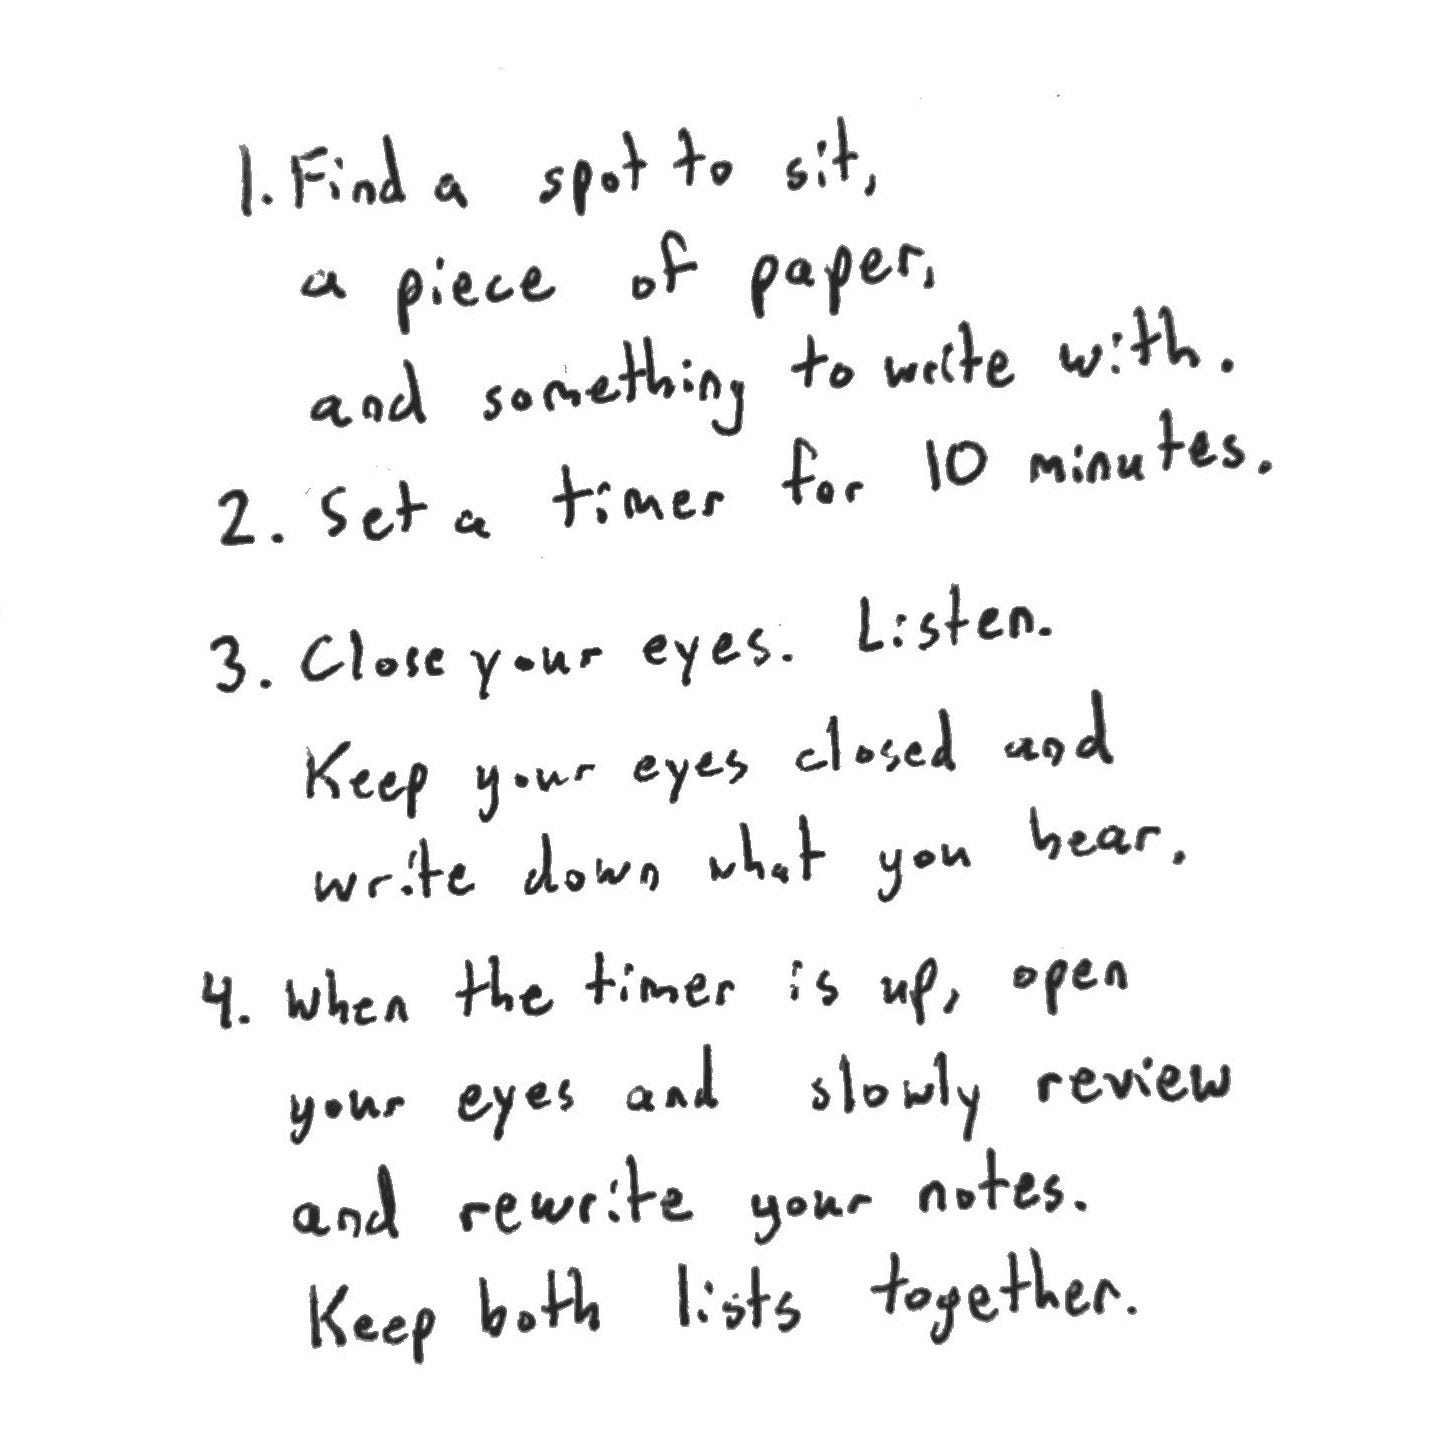 1. Find a spot to sit,
a piece of paper,
and something to write with.
2. Set a timer for 10 minutes.
3. Close your eyes. Listen.
Keep your eyes closed and
write down what you hear.
4. When the timer is up, open
your eyes and slowly review
and rewrite your notes.
Keep both lists together.